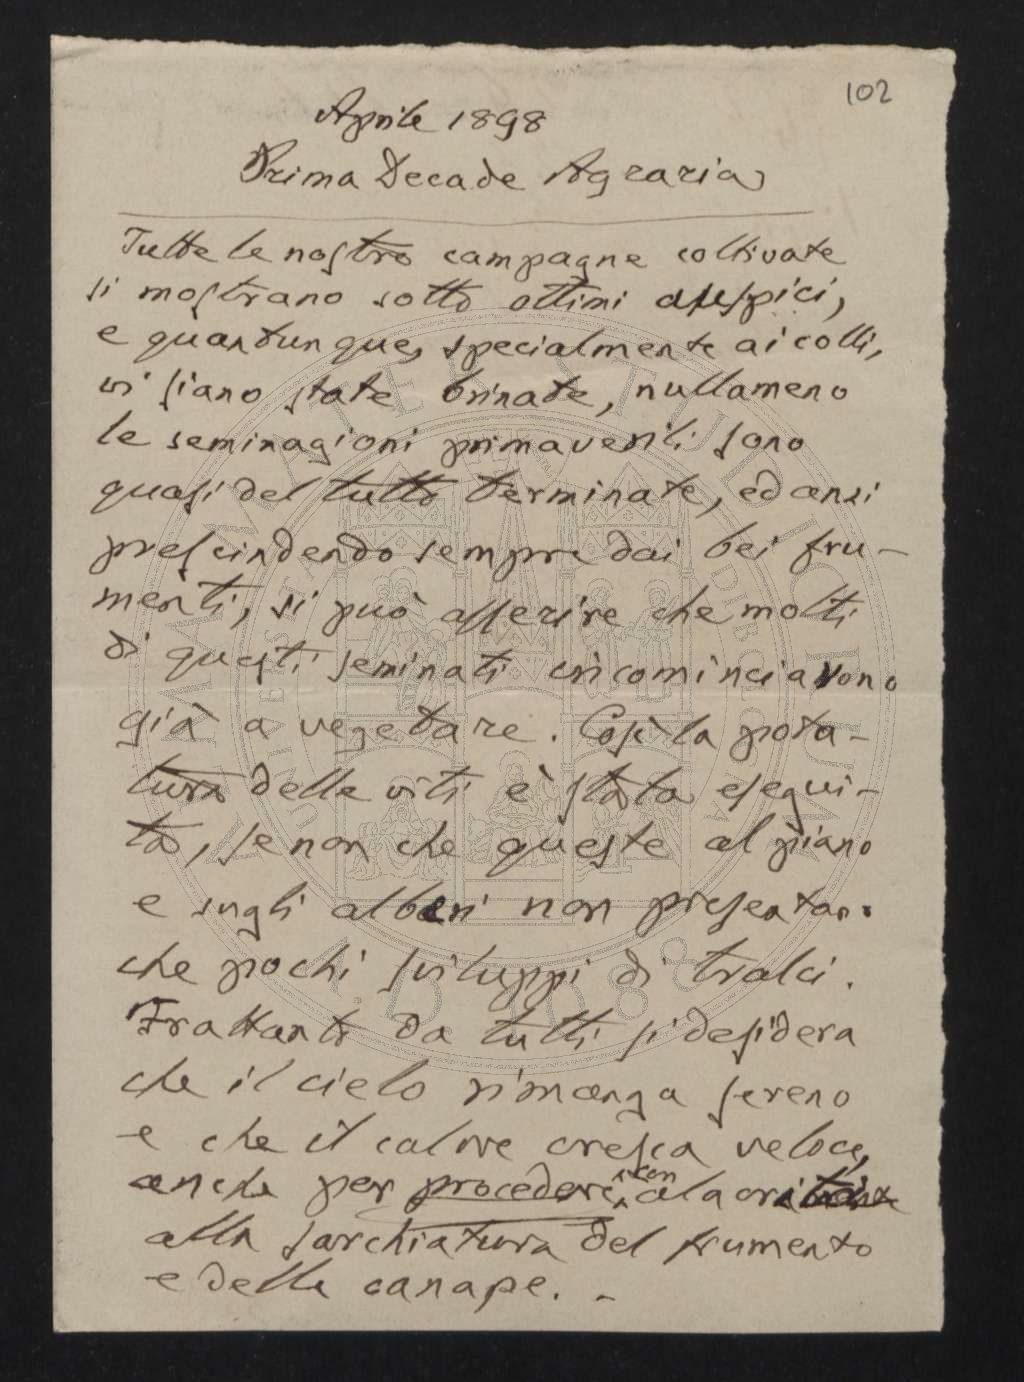 102
Aprile 1898
Prima Decade Agraria
Tutte le nostre campagne coltivate
si mostrano sotto ottimi auspici,
e quantunque, specialmente ai colli,
vi siano state brinate, nullameno
le seminagioni primaverili sono
quasi del tutto terminate, ed anzi
prescindendo sempre dai bei fru-
menti, si può asserire che molti
di questi seminati incominciarono
già a vegetare. Così la pota-
tura delle viti è stata esegui-
ta, se non che queste al piano
e sugli alberi non presentano
che pochi sviluppi di tralci.
Frattanto da tutti si desidera
che il cielo rimanga sereno
e che il calore cresca veloce,
anche per procedere con alacrità
alla sarchiatura del frumento
e della canape. -
ALMA MATER STUDIORUM
A.D. 1088